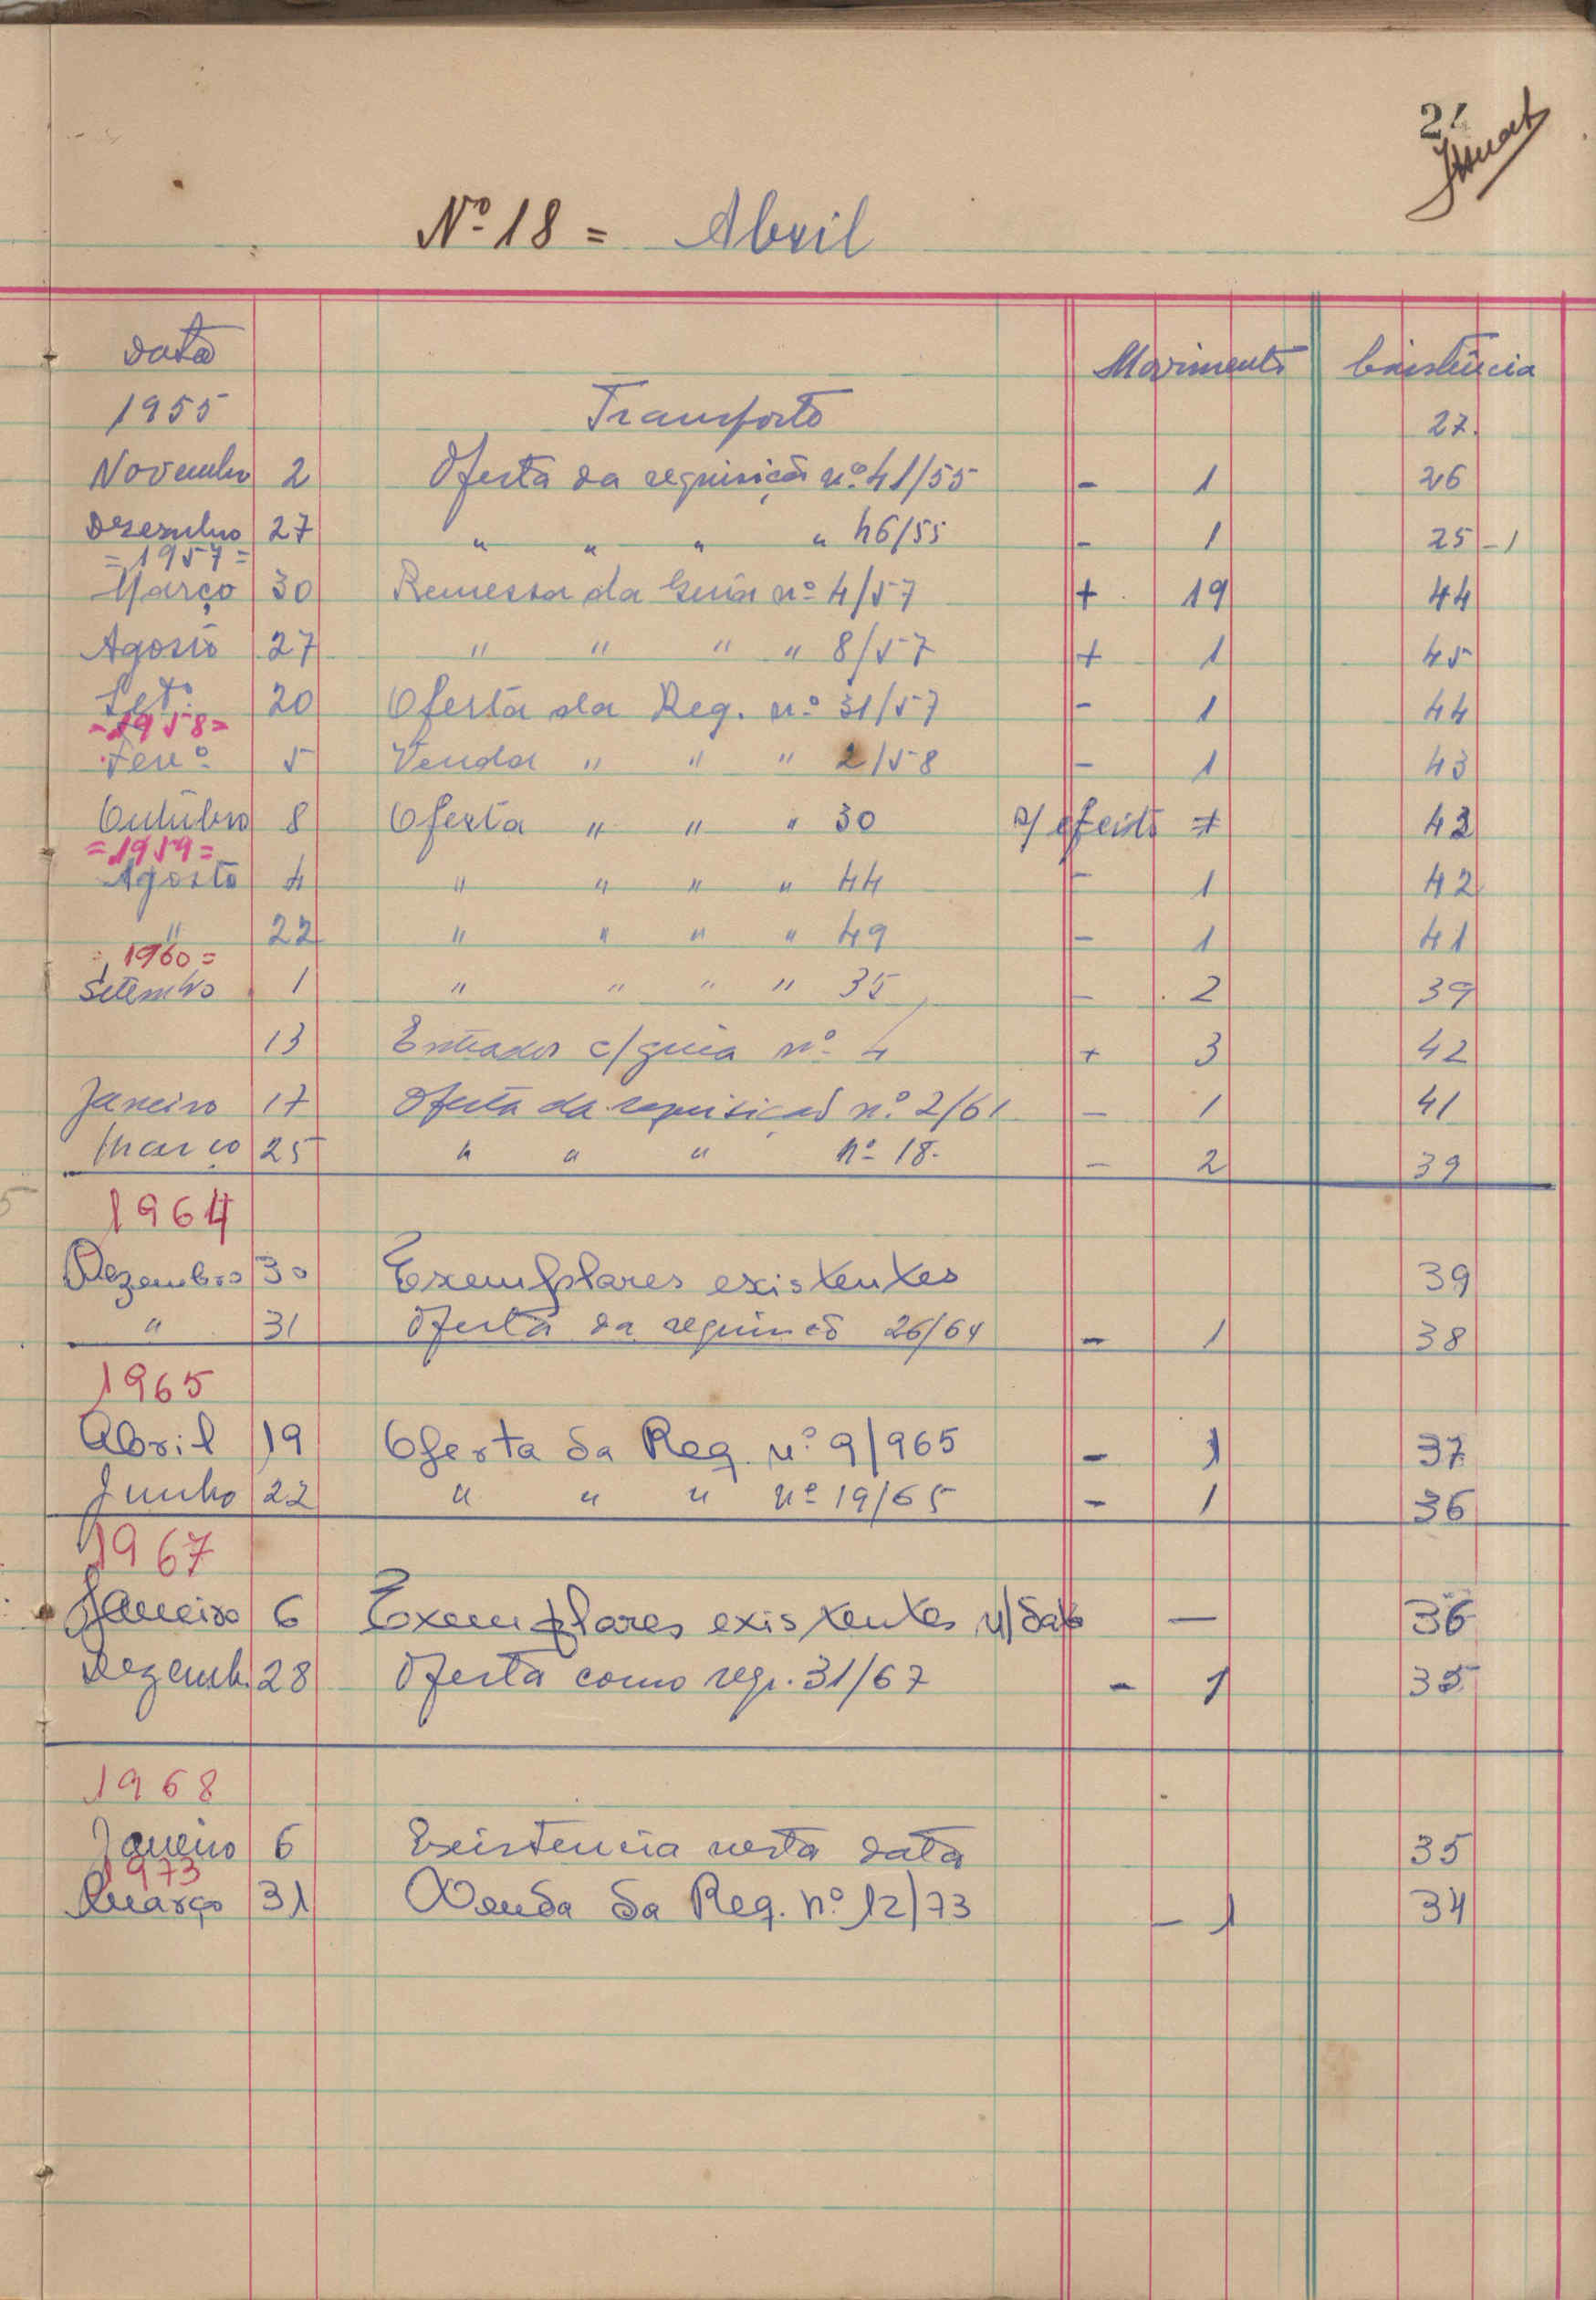 24
Nº 18 = Abril
Data Movimento Existência
1955 Transporte 27.
Novembro 2 Oferta da requisição nº 41/55 - 1 26
Dezembro 27 " " " " 46/55 - 1 25 -1
= 1957 =
Março 30 Remessa da Guia nº 4/57 + 19 44
Agosto 27 " " " " 8/57 + 1 45
Setº 20 Oferta da Req. nº 31/57 - 1 44
- 1958 =
Fevº 5 Venda " " " 2/58 - 1 43
Outubro 8 Oferta " " " 30 s/ efeito ≠ 43
= 1959 =
Agosto 4 " " " " 44 - 1 42
" 22 " " " " 49 - 1 41
1960 =
Setembro 1 " " " " 35 - 2 39
13 Entrados c/ guia nº 4 + 3 42
Janeiro 17 Oferta da requisição nº 2/61 - 1 41
Março 25 " " " nº 18. - 2 39
1964
Dezembro 30 Exemplares existentes 39
" 31 Oferta da requisicõ 26/64 - 1 38
1965
Abril 19 Oferta da Req. nº 9/965 - 1 37
Junho 22 " " " nº 19/65 - 1 36
1967
Janeiro 6 Exemplares existentes n/data — 36
Dezemb. 28 Oferta como req. 31/67 - 1 35
1968
Janeiro 6 Existencia nesta data 35
1973
Março 31 Venda da Req. nº 12/73 - 1 34